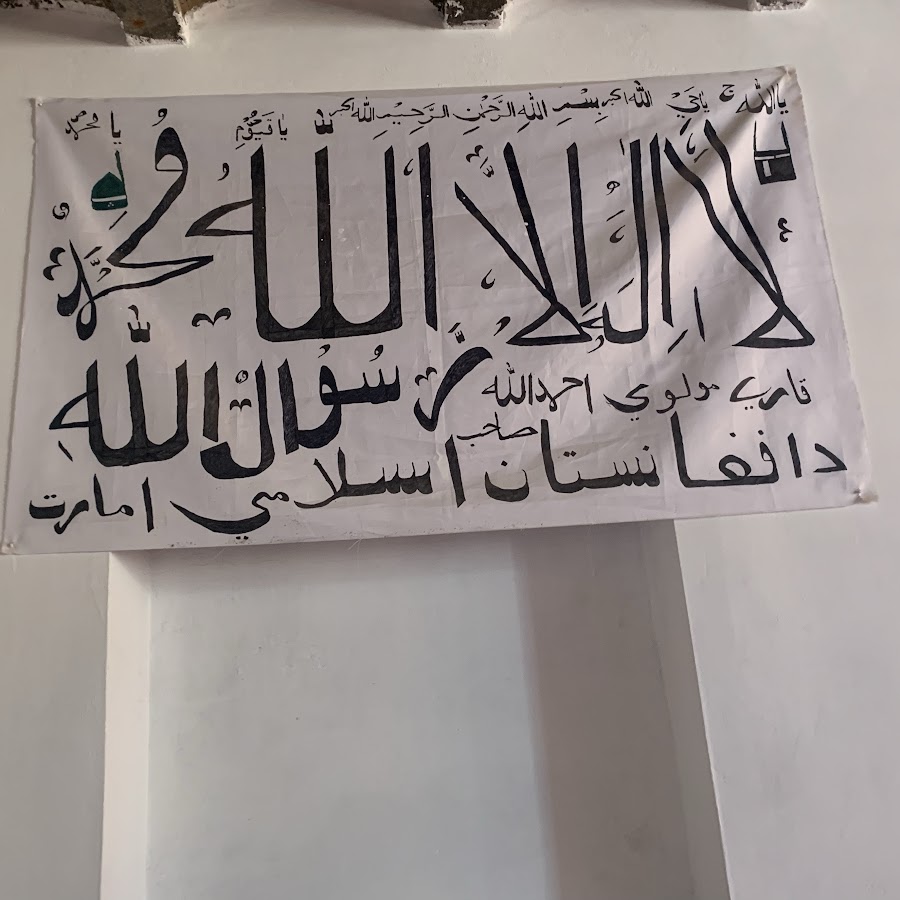 یاالله ج یاحَيُّ الله اکبر بِسْمِ اللهِ الرَّحْمٰنِ الرَّحِيْمِ الله اکبر یا قَيُّوْمُ یا محمد ص
لَا اِلٰهَ اِلَّا اللهُ مُحَمَّدٌ
رَّسُوْلُ اللهِ
قاري مولوي احمدالله صاحب
د افغانستان اسلامي امارت